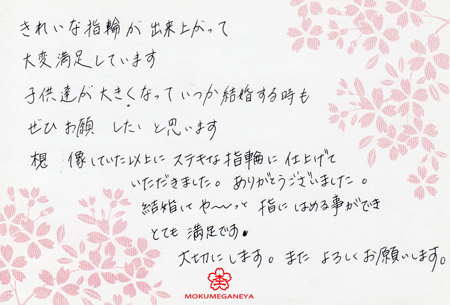 きれいな指輪が出来上がって
大変満足しています
子供達が大きくなっていつか結婚する時も
ぜひお願いしたいと思います
想像していた以上にステキな指輪に仕上げて
いただきました。ありがとうございました。
結婚してや〜っと指にはめる事ができ
とても満足です。
大切にします。またよろしくお願いします。
MOKUMEGANEYA